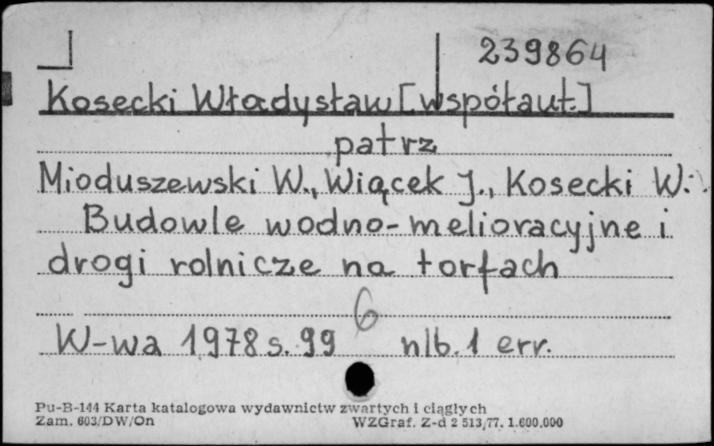 239864
Kosecki Władysław [współaut.]
patrz
Mioduszewski W., Wiącek J., Kosecki W.:
Budowle wodno-melioracyjne i
drogi rolnicze na torfach
6
W-wa 1978 s. 99 nlb. 1 err.
Pu-B-144 Karta katalogowa wydawnictw zwartych i ciągłych
Zam. 603/DW/On WZGraf. Z-d 2 513/77. 1.600.000